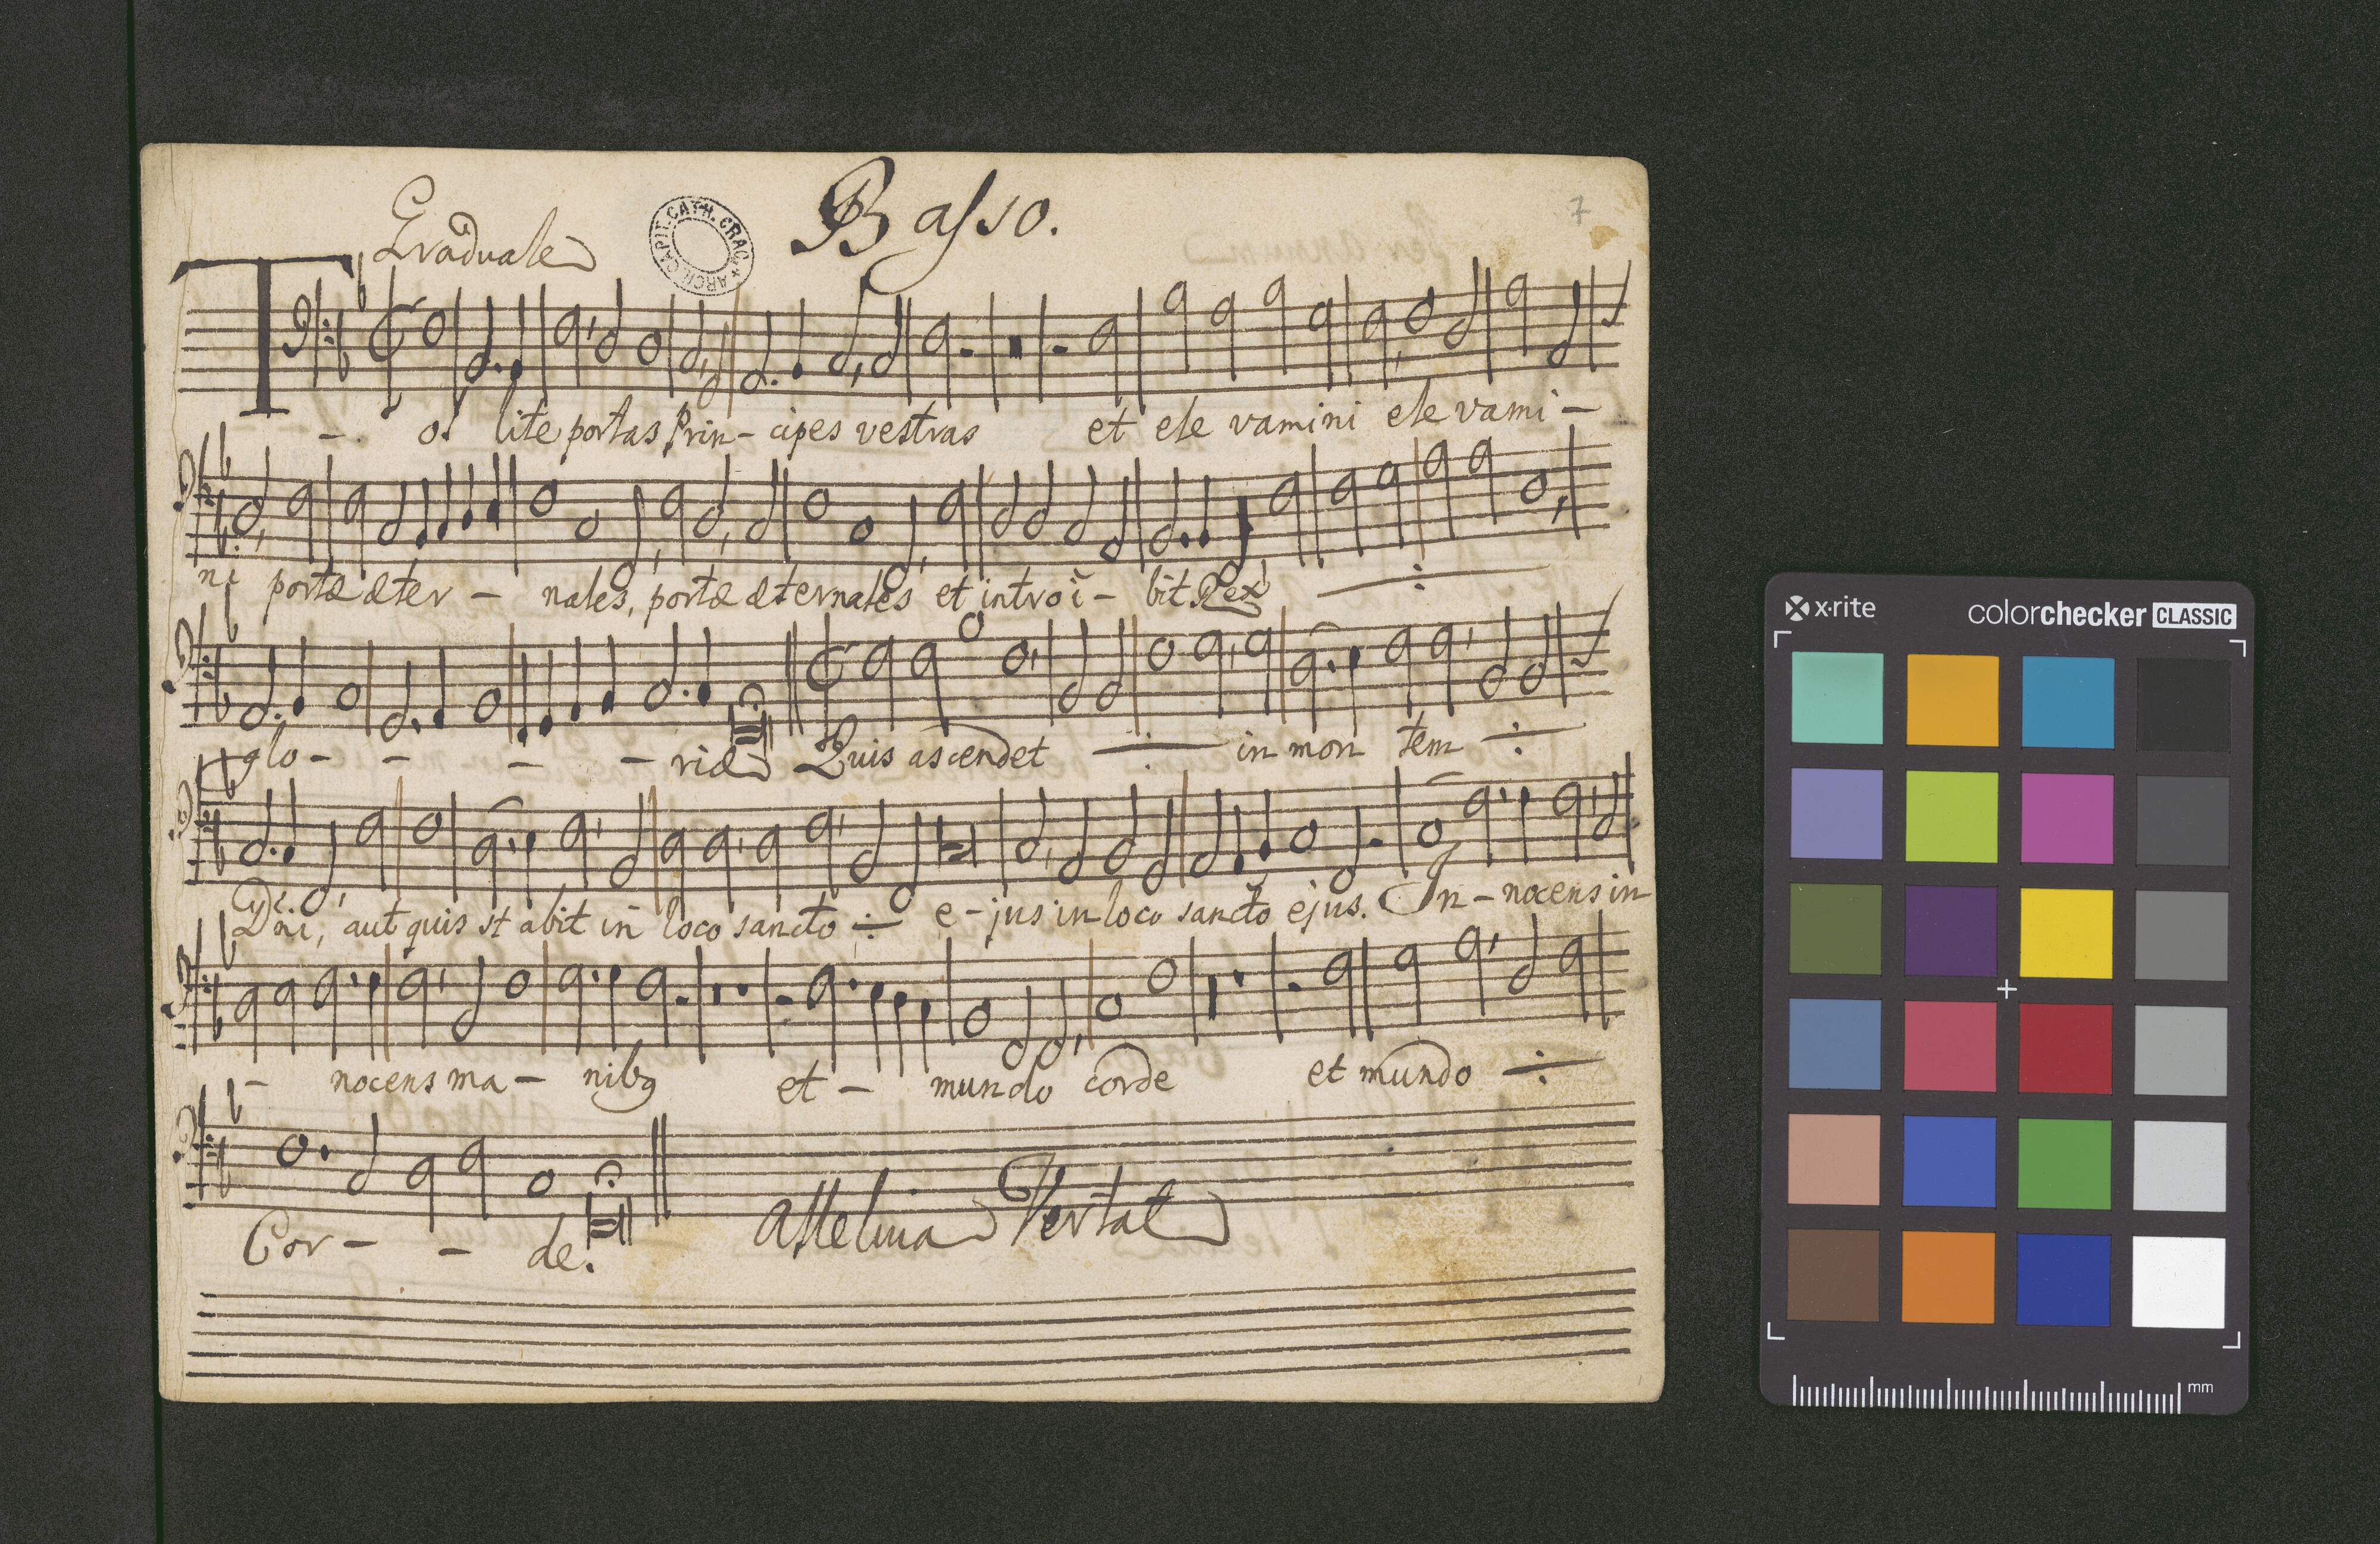 Graduale
Basso.
7
ARCH. CAPIT. CATH. CRAC.
T - ol lite portas Prin - cipes vestras et ele vamini ele vami -
ni portæ æter - nales, portæ æternales et introi - bit Rex ÷
glo - - - - riæ Quis ascendet ÷ in mon tem ÷
Dñi, aut quis st abit in loco sancto ÷ e - jus in loco sancto ejus. In - nocens in
- nocens ma - nibꝰ et - mundo corde et mundo ÷
Cor - - de.
Alleluia Vertat
x-rite
colorchecker CLASSIC
mm